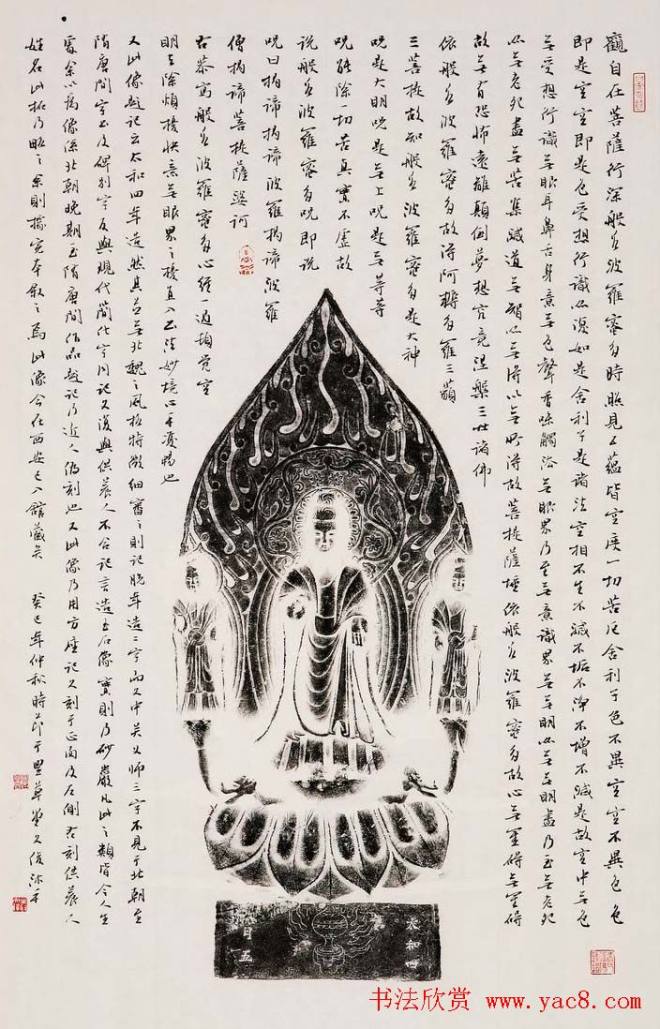 觀自在菩薩行深般若波羅蜜多時照見五蘊皆空度一切苦厄舍利子色不異空空不異色色
即是空空即是色受想行識亦復如是舍利子是諸法空相不生不滅不垢不淨不增不減是故空中無色
無受想行識無眼耳鼻舌身意無色聲香味觸法無眼界乃至無意識界無無明亦無無明盡乃至無老死
亦無老死盡無苦集滅道無智亦無得以無所得故菩提薩埵依般若波羅蜜多故心無罣礙無罣礙
故無有恐怖遠離顛倒夢想究竟涅槃三世諸佛
依般若波羅蜜多故得阿耨多羅三藐
三菩提故知般若波羅蜜多是大神
呪是大明呪是無上呪是無等等
呪能除切苦真實不虛故
說般若波羅蜜多呪即說
呪曰揭諦揭諦波羅揭諦波羅
僧揭諦菩提薩婆訶
右恭寫般若波羅蜜多心經一過頓覺空
明除煩擾快意無眼界之擾直入正法妙境心手暢也
又此像題記云太和四年造然其並無北魏之風格特徵細審之則記晚年造二字而又中父師三字不見于北朝至
隋唐間字不及碑別字反與現代簡化字同記又復與供養人不合記言造玉石像實則乃砂巖凡此之類皆令人生
疑余以為像係北朝晚期至隋唐間作品題記乃近人偽刻也又此像乃用方座記又刻于正面及左側右刻供養人
姓名此拓乃略之余則據實本敘之焉此像今在西安已入館藏矣 癸巳年仲秋時節于草堂又俊沐手
太和四
月五
书法欣赏 www.yac8.com